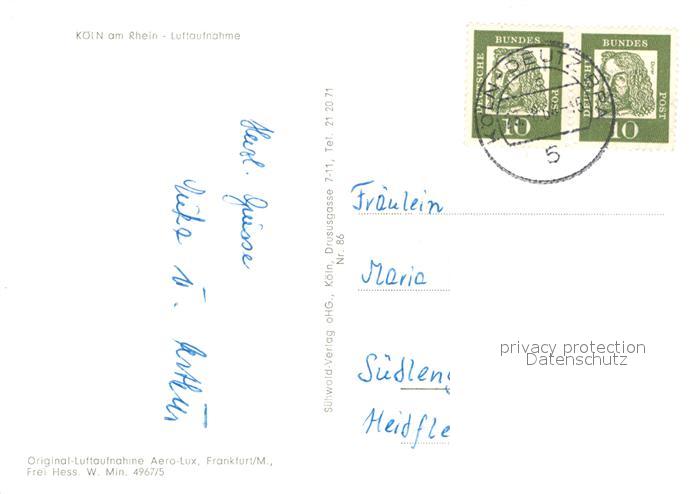 KÖLN am Rhein - Luftaufnahme
DEUTSCHE BUNDES POST
10
Dürer
DEUTSCHE BUNDES POST
10
KÖLN-DEUTZ
5
Herzl. Grüsse
Sühwold-Verlag oHG., Köln, Drususgasse 7-11, Tel. 21 20 71
Nr. 86
Fräulein
Maria
Südleng
Heidfle
privacy protection
Datenschutz
Original-Luftaufnahme Aero-Lux, Frankfurt/M.,
Frei Hess. W. Min. 4967/5